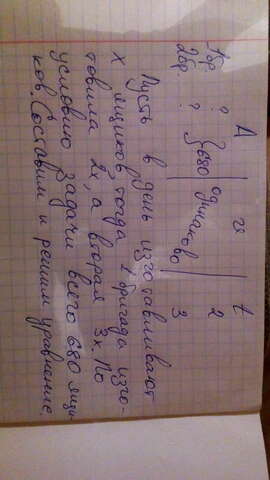 A v t
1бр. ? } 680 одинаково 2
2бр. ? 3
Пусть в день изготавливают
х ящиков тогда 1 бригада изго-
товила 2х, а вторая 3х. По
условию задачи всего 680 ящи-
ков. Составим и решим уравнение.